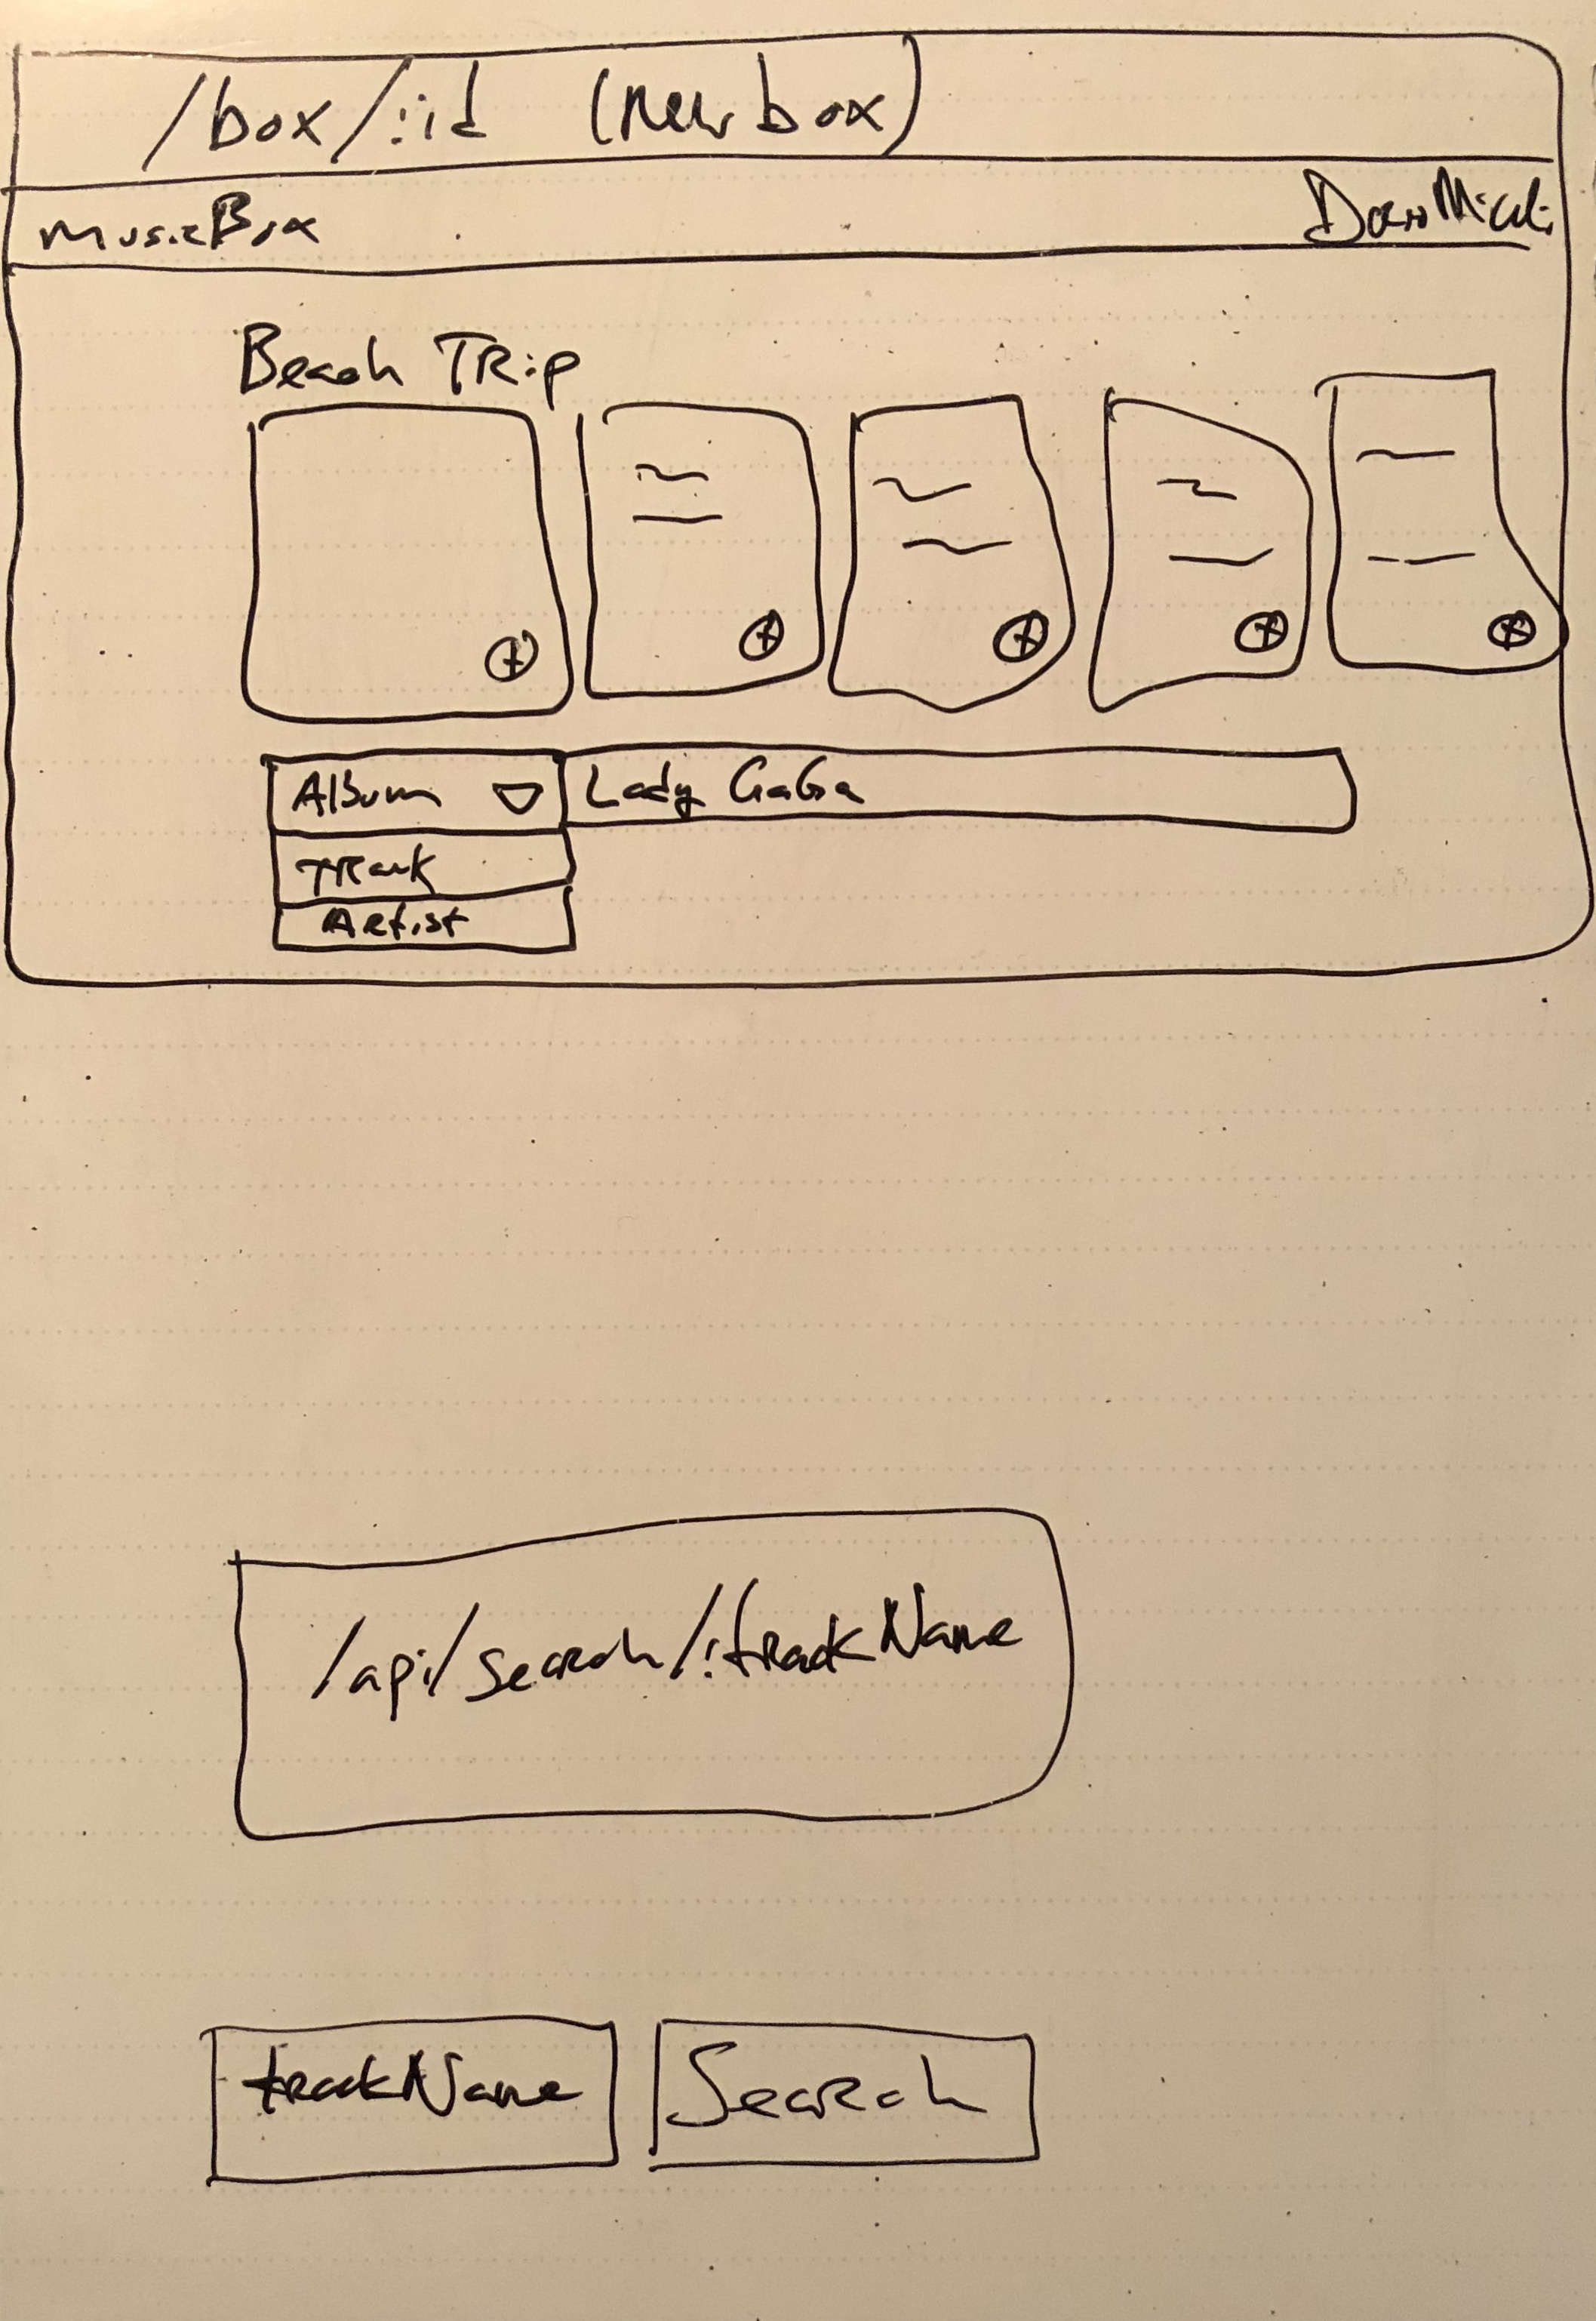 /box/:id (new box)
MusicBox
Beach TRip
Album Lady GaGa
TRack
Artist
/api/search/:trackName
trackName Search